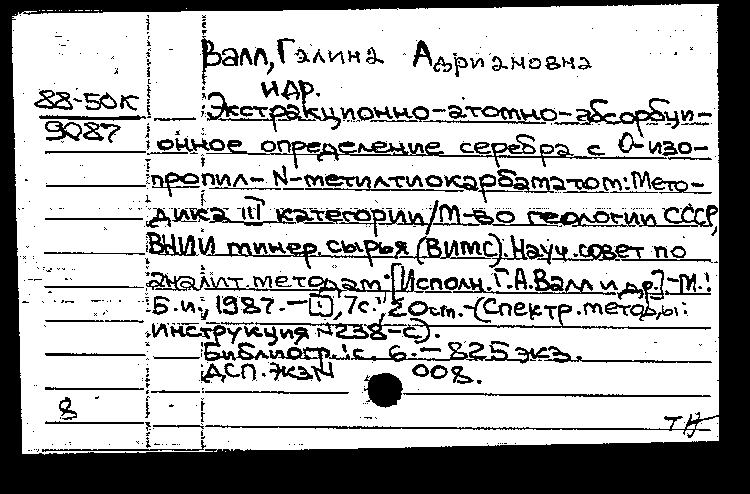 Валл, Галина Адриановна
и др.
88-50К
9087
Экстракционно-атомно-абсорбци-
онное определение серебра с О-изо-
пропил-N-метилтиокарбаматом: Мето-
дика III категории/М-во геологии СССР,
ВНИИ минер. сырья (ВИМС). Науч. совет по
аналит. методам; [Исполн. Г.А. Валл и др.].-М.:
Б.и., 1987.-[ ], 7 с.; 20 см.-(Спектр. методы:
инструкция N238-с).
Библиогр.: с. 6. - 825 экз.
ДСП. Экз N 008.
8